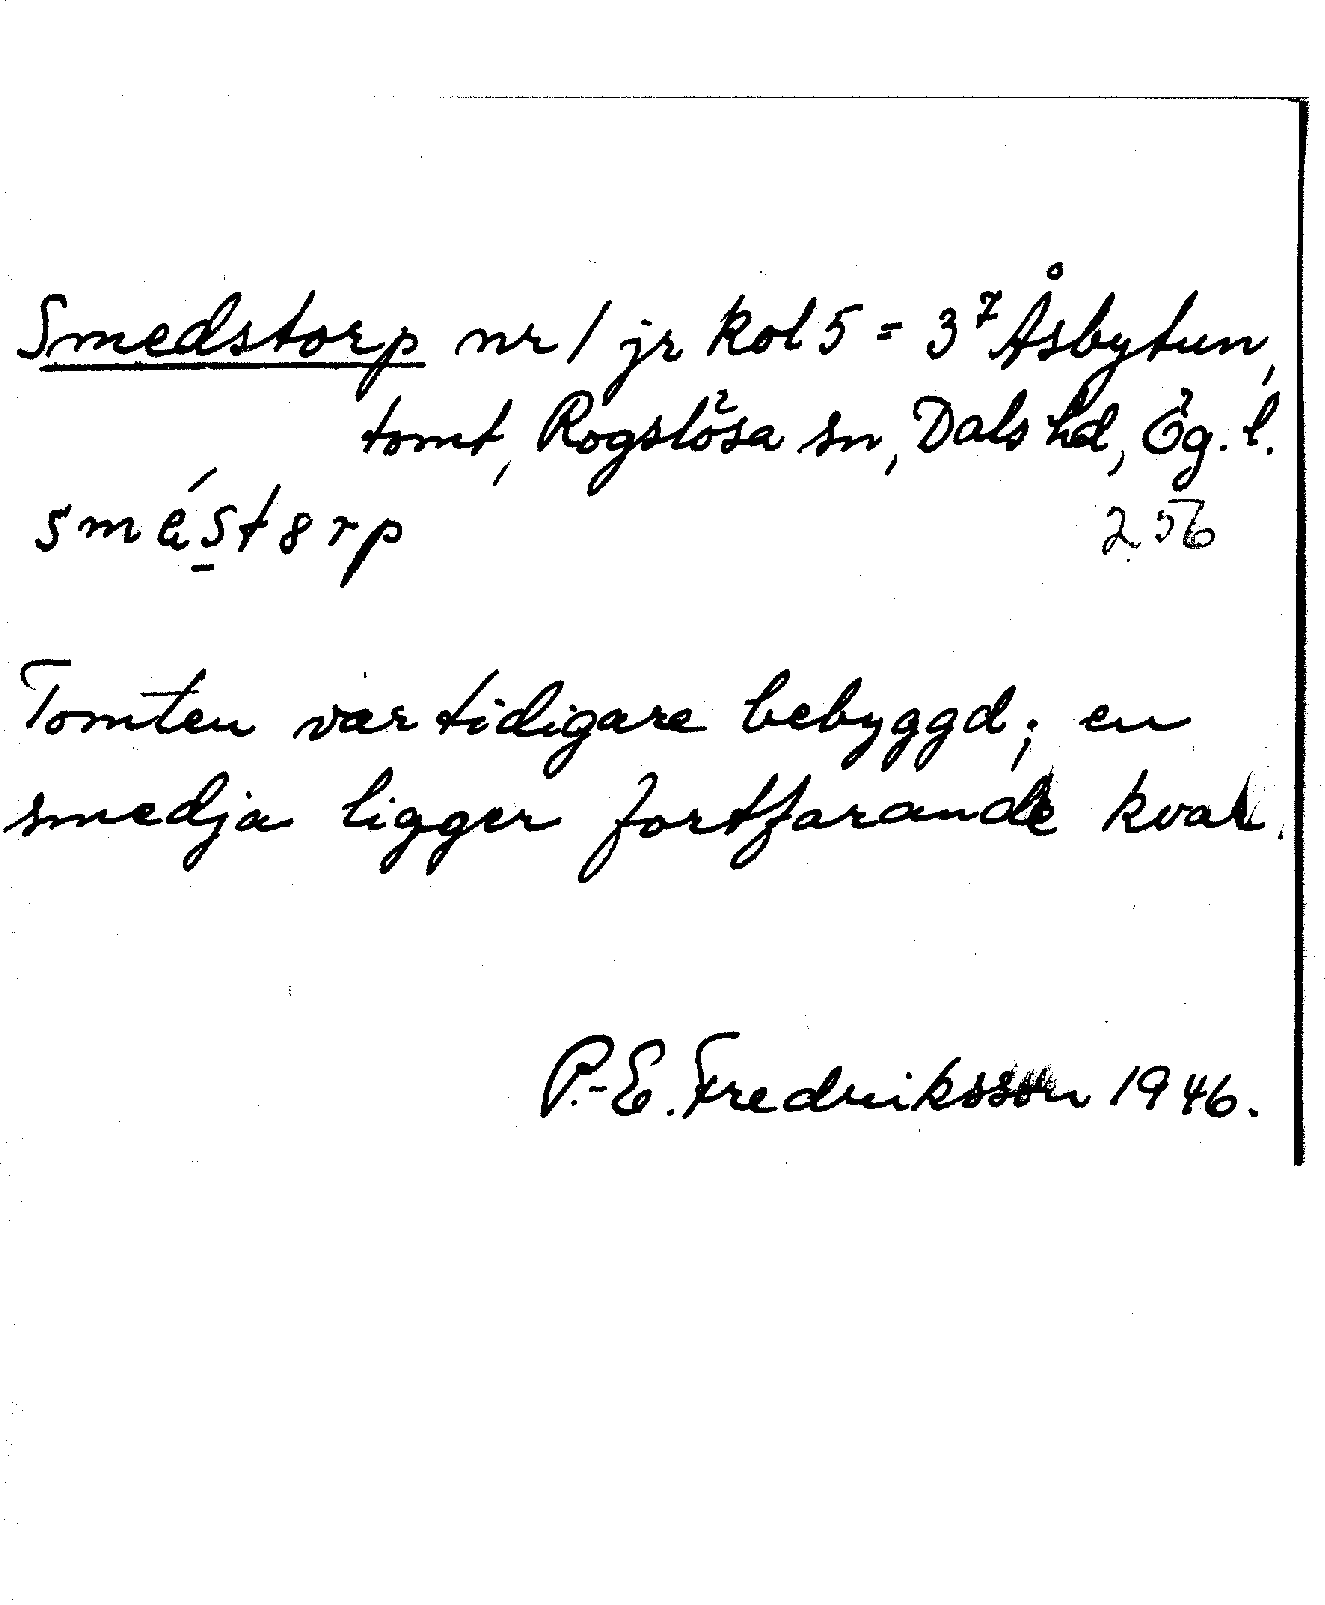 Smedstorp nr 1 jr kol 5 = 3⁷ Åsbytun,
tomt, Rogslösa sn, Dals hd, Ög. l.
sméstȣrp
256
Tomten var tidigare bebyggd; en
smedja ligger fortfarande kvar.
P.-E. Fredriksson 1946.